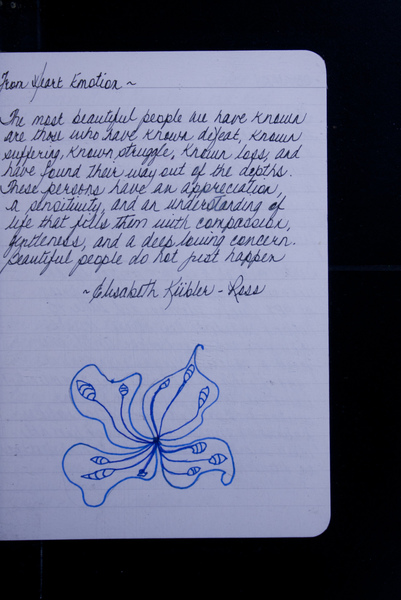 From Heart Emotion ~
The most beautiful people we have known
are those who have known defeat, known
suffering, known struggle, known loss, and
have found their way out of the depths.
These persons have an appreciation,
a sensitivity, and an understanding of
life that fills them with compassion,
gentleness, and a deep loving concern.
Beautiful people do not just happen
~ Elisabeth Kübler - Ross